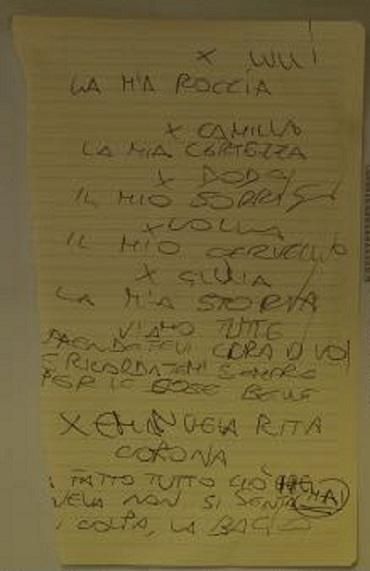 X LULÙ
LA MIA ROCCIA
X CAMILLO
LA MIA CERTEZZA
X DODO
IL MIO SORRISO
X LOLLA
IL MIO CERVELLO
X GIULIA
LA MIA STORIA
V'AMO TUTTE
PRENDETEVI CURA DI VOI
E RICORDATEMI SEMPRE
PER LE COSE BELLE
X EMANUELA RITA
CORONA
FATTO TUTTO CIÒ CHE HAI
NON SI SENTA
COLPA, LA BACIO